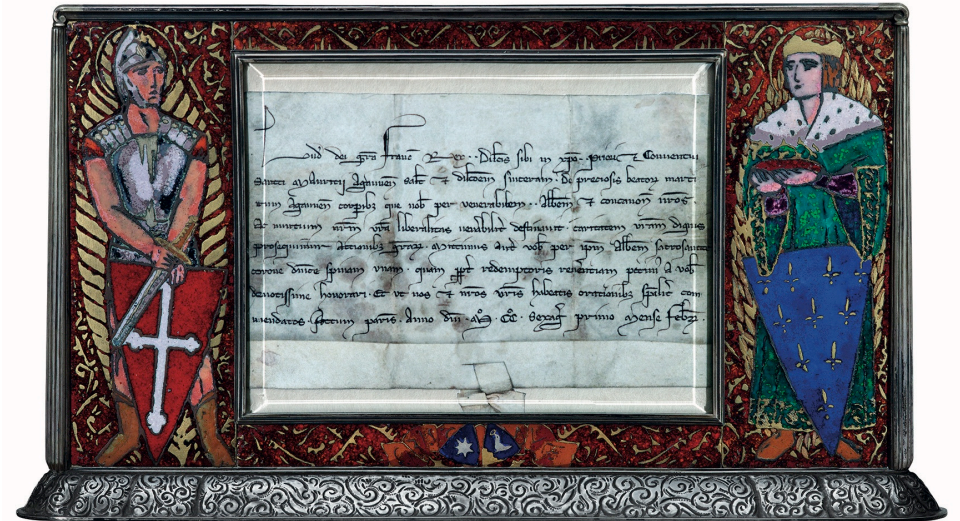 Lud' dei gra Franc Rex . . Dilcis sibi in xpo . Priori et Conventui
Sancti Mauricii Agaunen salt et dilcoem sinceram . De preciosis beator marti
rum Agaunen corpibz que nob per venerabilem . . Abbem et concanon vros
vra liberalitas venabilit destinavit caritatem vram dignis
prosequimur actionibz graz . Mittimus aut vob per ipm Abbem sacrosancte
corone dnice spinam unam . quam ppt redemptoris reverentiam petim a vob
devotissime honorari . Et ut nos et nros vris habeatis orationibz spalit com
mendatos . Actum paris . Anno dni . Mo . CCo . Sexag primo Mense Febr .